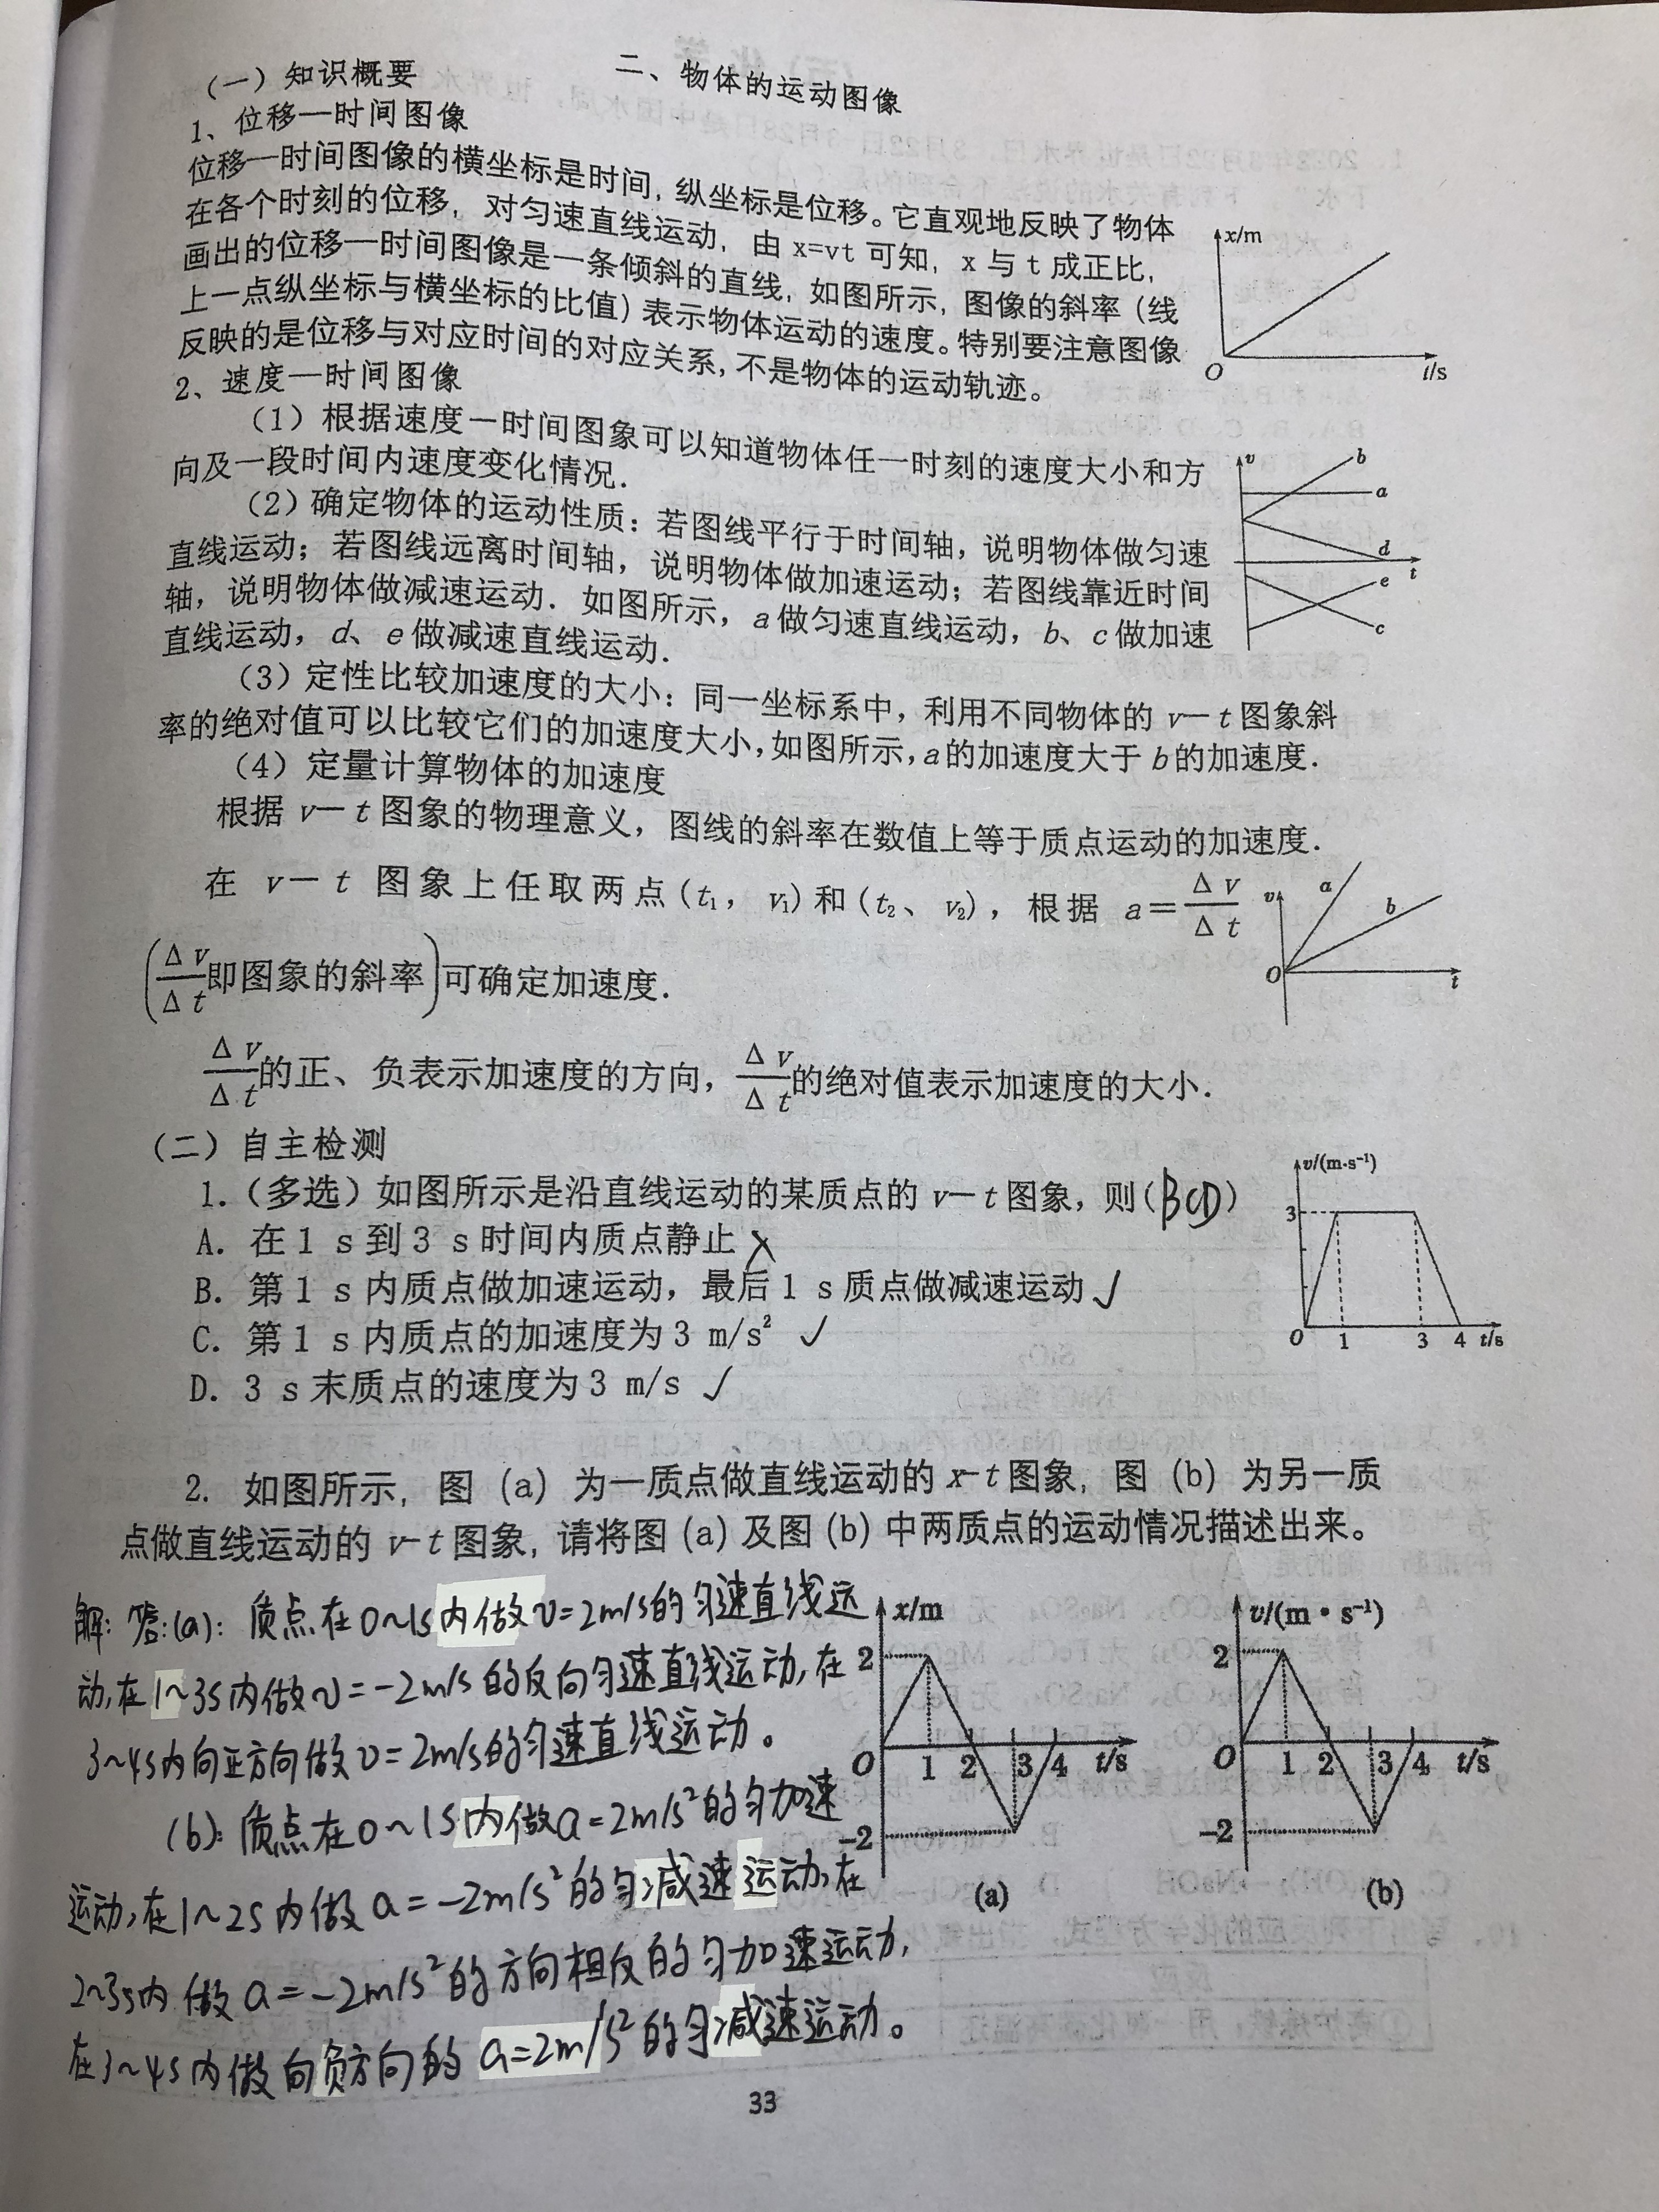 二、物体的运动图像
（一）知识概要
1、位移—时间图像
位移—时间图像的横坐标是时间，纵坐标是位移。它直观地反映了物体
在各个时刻的位移，对匀速直线运动，由 x=vt 可知，x 与 t 成正比，
画出的位移—时间图像是一条倾斜的直线，如图所示，图像的斜率（线
上一点纵坐标与横坐标的比值）表示物体运动的速度。特别要注意图像
反映的是位移与对应时间的对应关系，不是物体的运动轨迹。
x/m
O
t/s
2、速度—时间图像
（1）根据速度－时间图象可以知道物体任一时刻的速度大小和方
向及一段时间内速度变化情况．
（2）确定物体的运动性质：若图线平行于时间轴，说明物体做匀速
直线运动；若图线远离时间轴，说明物体做加速运动；若图线靠近时间
轴，说明物体做减速运动．如图所示，a 做匀速直线运动，b、c 做加速
直线运动，d、e 做减速直线运动．
v
b
a
d
t
e
c
（3）定性比较加速度的大小：同一坐标系中，利用不同物体的 v－t 图象斜
率的绝对值可以比较它们的加速度大小，如图所示，a 的加速度大于 b 的加速度．
（4）定量计算物体的加速度
根据 v－t 图象的物理意义，图线的斜率在数值上等于质点运动的加速度．
在 v－t 图象上任取两点(t₁，v₁)和(t₂、v₂)，根据 a＝Δv/Δt
(Δv/Δt 即图象的斜率)可确定加速度．
v
a
b
O
t
Δv/Δt 的正、负表示加速度的方向，Δv/Δt 的绝对值表示加速度的大小．
（二）自主检测
1.（多选）如图所示是沿直线运动的某质点的 v－t 图象，则(BCD)
A. 在 1 s 到 3 s 时间内质点静止 ×
B. 第 1 s 内质点做加速运动，最后 1 s 质点做减速运动 √
C. 第 1 s 内质点的加速度为 3 m/s² √
D. 3 s 末质点的速度为 3 m/s √
v/(m·s⁻¹)
3
O 1 3 4 t/s
2. 如图所示，图 (a) 为一质点做直线运动的 x-t 图象，图 (b) 为另一质
点做直线运动的 v-t 图象，请将图 (a) 及图 (b) 中两质点的运动情况描述出来。
解：答：(a)：质点在0~1s内做v=2m/s的匀速直线运
动，在1~3s内做v=-2m/s的反向匀速直线运动，在
3~4s内向正方向做v=2m/s的匀速直线运动。
(b)：质点在0~1s内做a=2m/s²的匀加速
运动，在1~2s内做a=-2m/s²的匀减速运动，在
2~3s内做a=-2m/s²的方向相反的匀加速运动，
在3~4s内做向负方向的a=2m/s²的匀减速运动。
x/m
2
O 1 2 3 4 t/s
-2
(a)
v/(m·s⁻¹)
2
O 1 2 3 4 t/s
-2
(b)
33